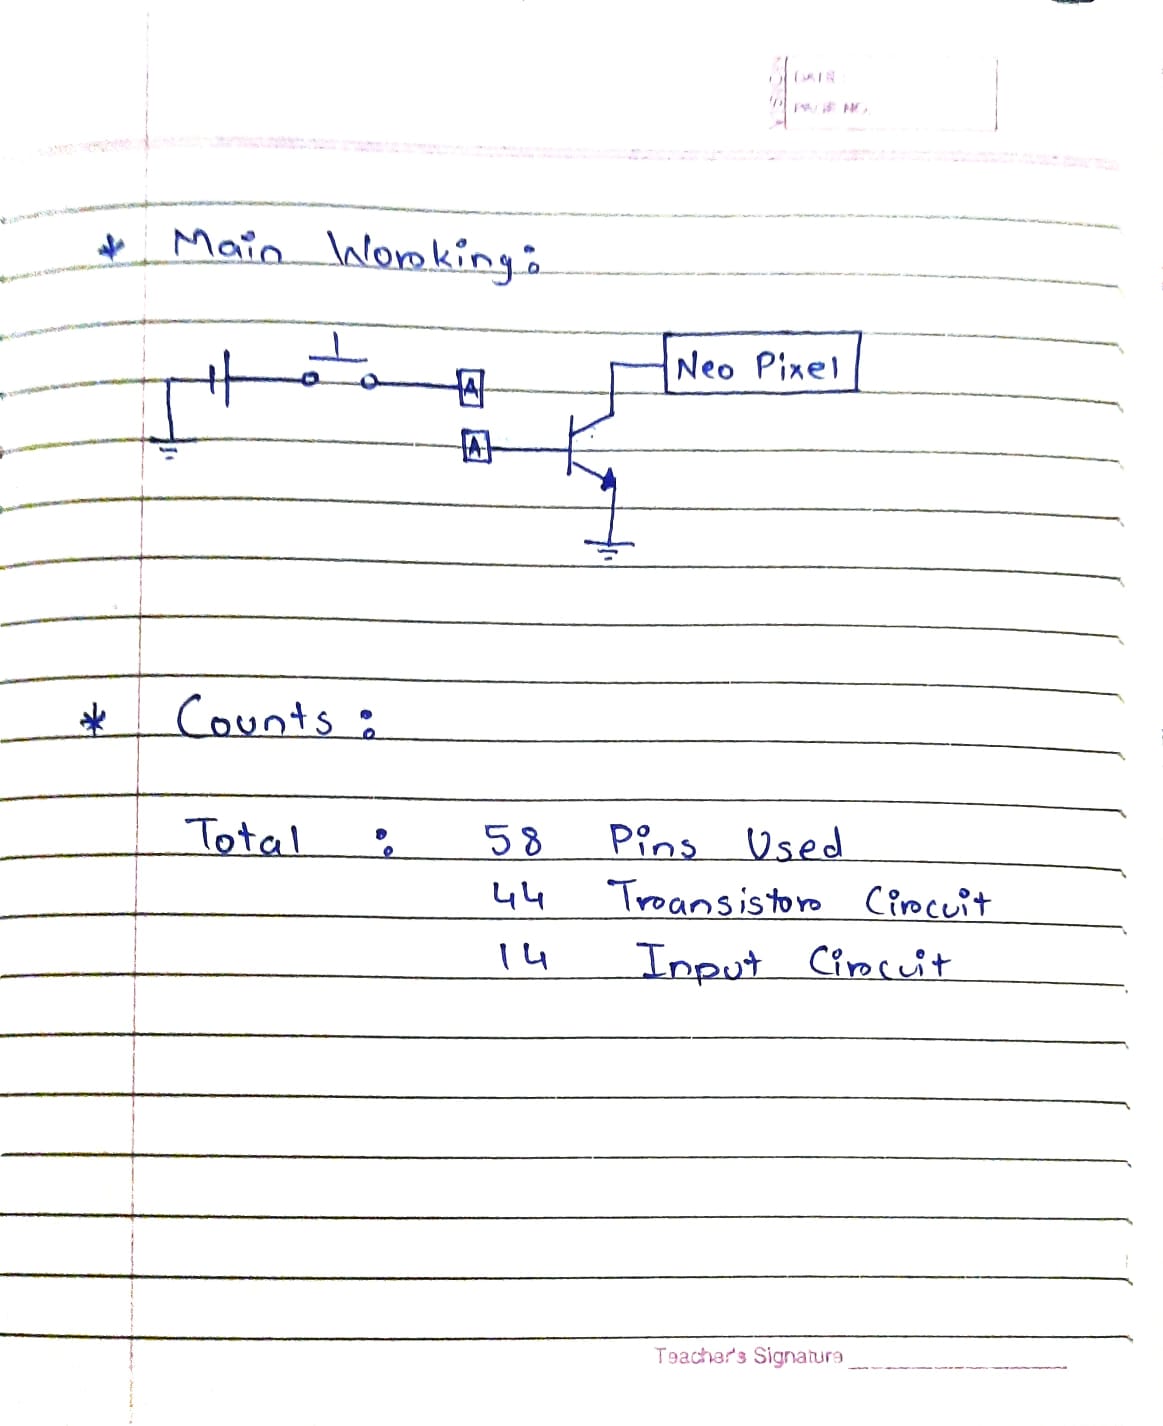 DATE
PAGE NO.
* Main Working:
Neo Pixel
A
A
* Counts :
Total : 58 Pins Used
44 Transistor Circuit
14 Input Circuit
Teacher's Signature